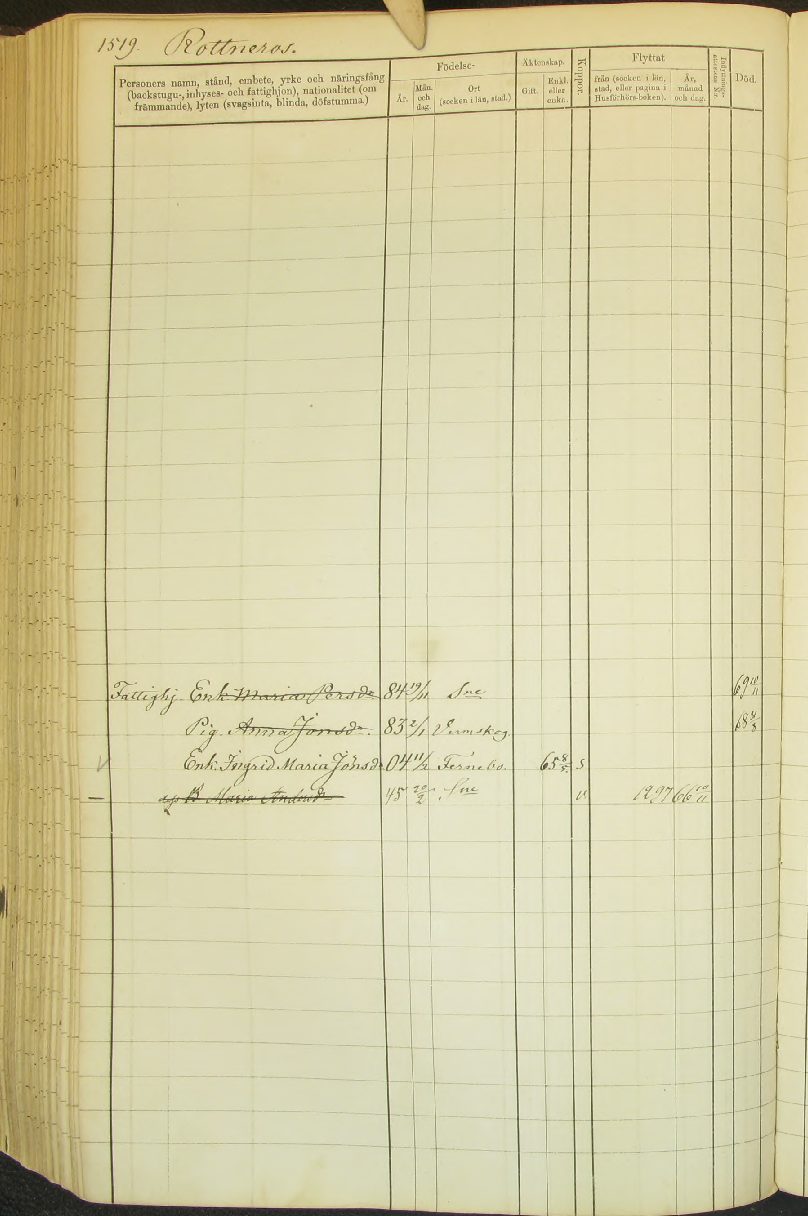 1519. Rottneros.
Personers namn, stånd, embete, yrke och näringsfång (backstugu-, inhyses- och fattighjon), nationalitet (om främmande), lyten (svagsinta, blinda, döfstumma.)
Födelse-
År.
Mån. och dag.
Ort (socken i län, stad.)
Äktenskap.
Gift.
Enkl. eller enka.
Koppor.
Flyttat
från (socken i län, stad, eller pagina i Husförhörs-boken).
År, månad och dag.
Död.
Fattighj. Enk. Maria Persdr 84 19/11 Sne 69 10/11
Pig. Anna Jonsdr. 83 2/1 Vermskog. 68
Enk. Ingrid Maria Jönsdr 04 11/2 Fernebo. 65 8/5 s
Maria Andersdr 45 20/2 Sne v 1297 66 10/11